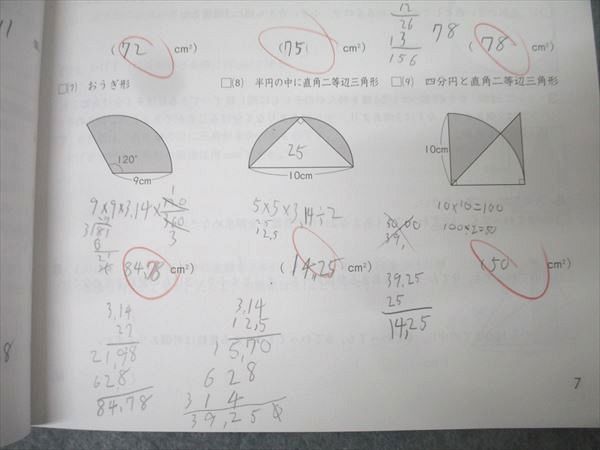 12
26
13
156
78
(72 cm²)
(75) cm²)
(78 cm²)
□(7) おうぎ形
□(8) 半円の中に直角二等辺三角形
□(9) 四分円と直角二等辺三角形
120°
9cm
25
10cm
10cm
9×9×3.14×
1
120
360
3
3)81
5×5×3.14÷2
12.5
10×10=100
100÷2=50
84.78 cm²)
(14.25 cm²)
(50 cm²)
3.14
27
21.98
628
84.78
3.14
12.5
15.70
628
314
39.250
39.25
25
14.25
7